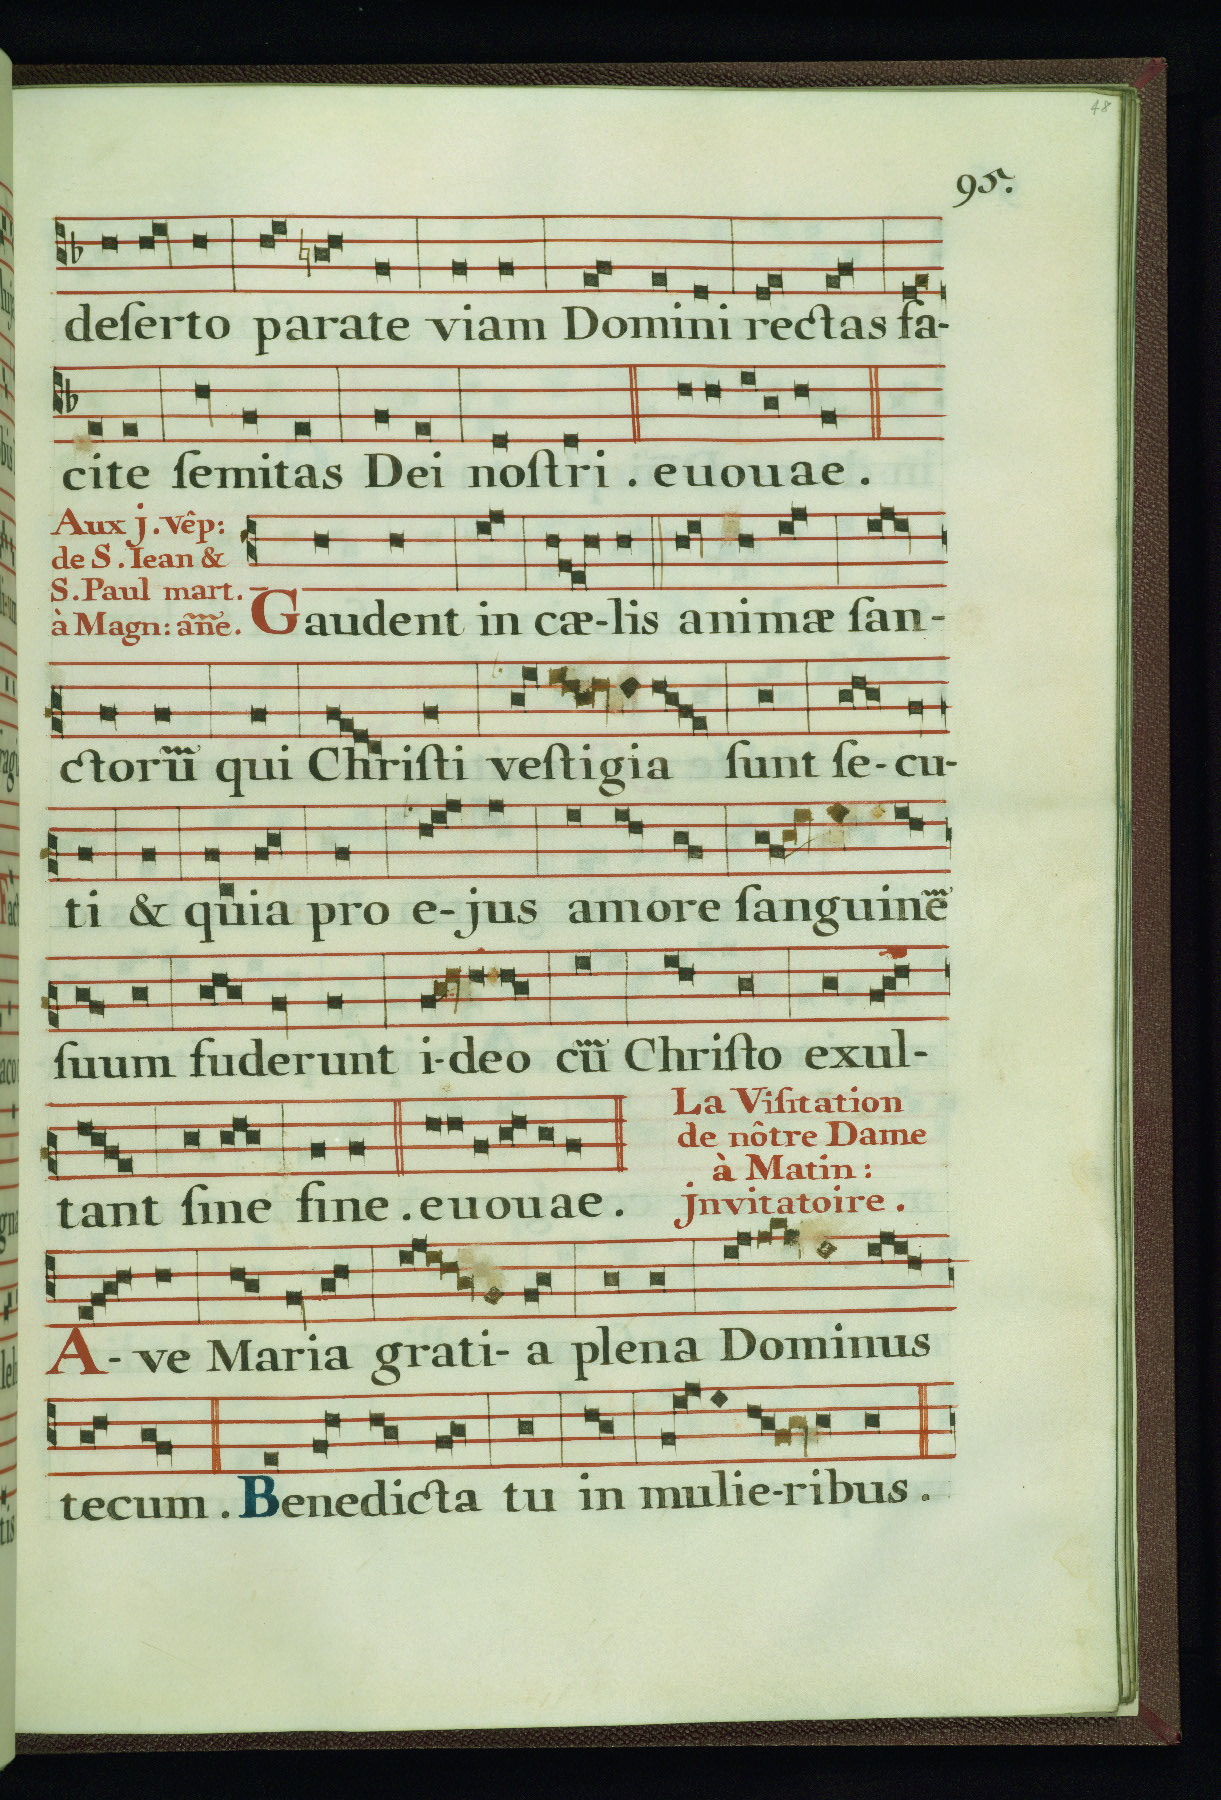 48
95.
deſerto parate viam Domini rectas fa-
cite ſemitas Dei noſtri . euouae .
Aux j. vêp:
de S. Iean &
S. Paul mart.
à Magn: añe.
Gaudent in cæ-lis animæ ſan-
ctorũ qui Chriſti veſtigia ſunt ſe-cu-
ti & quia pro e-jus amore ſanguinẽ
ſuum fuderunt i-deo cũ Chriſto exul-
tant ſine fine . euouae .
La Viſitation
de nôtre Dame
à Matin :
jnvitatoire .
A- ve Maria grati- a plena Dominus
tecum . Benedicta tu in mulie-ribus .